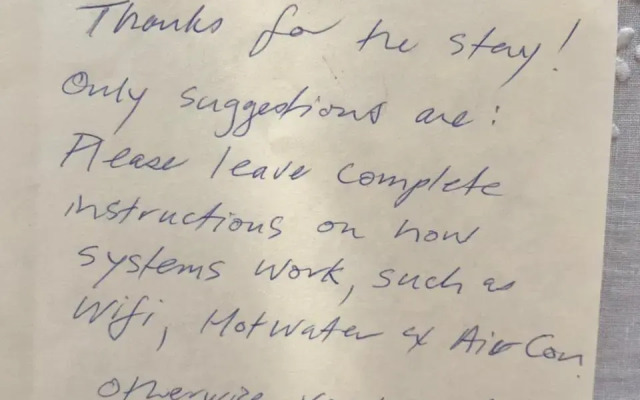 Thanks for the stay!
Only suggestions are:
Please leave complete
instructions on how
systems work, such as
Wifi, Hotwater & Air Con.
otherwise